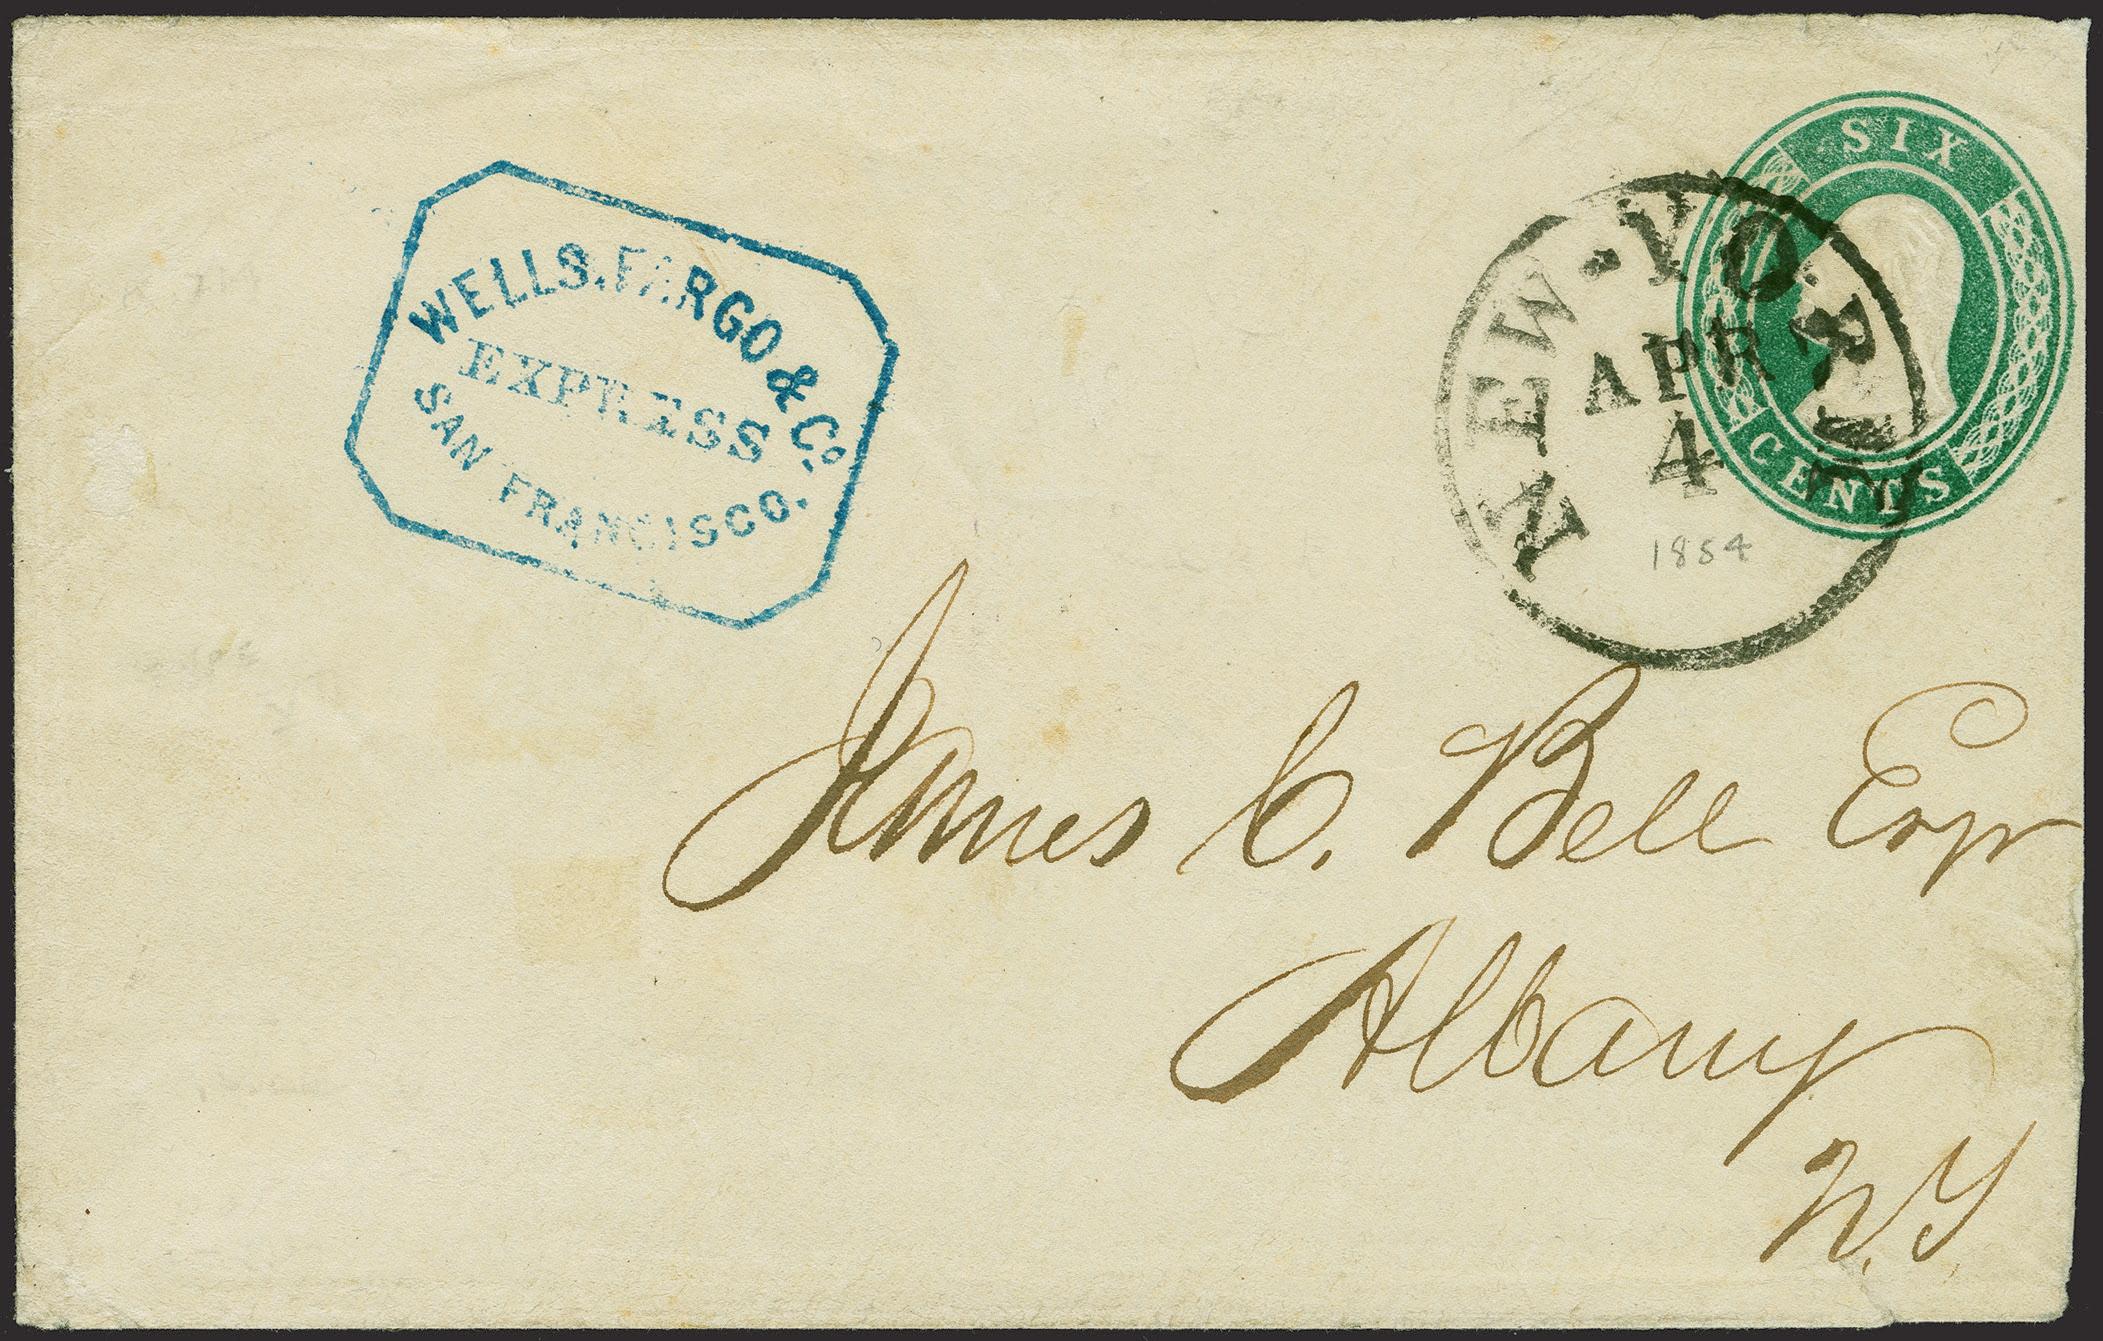 WELLS, FARGO & Co.
EXPRESS
SAN FRANCISCO.
SIX
CENTS
NEW-YORK
APR
4
1854
James C. Bell Esqr
Albany
N.Y.